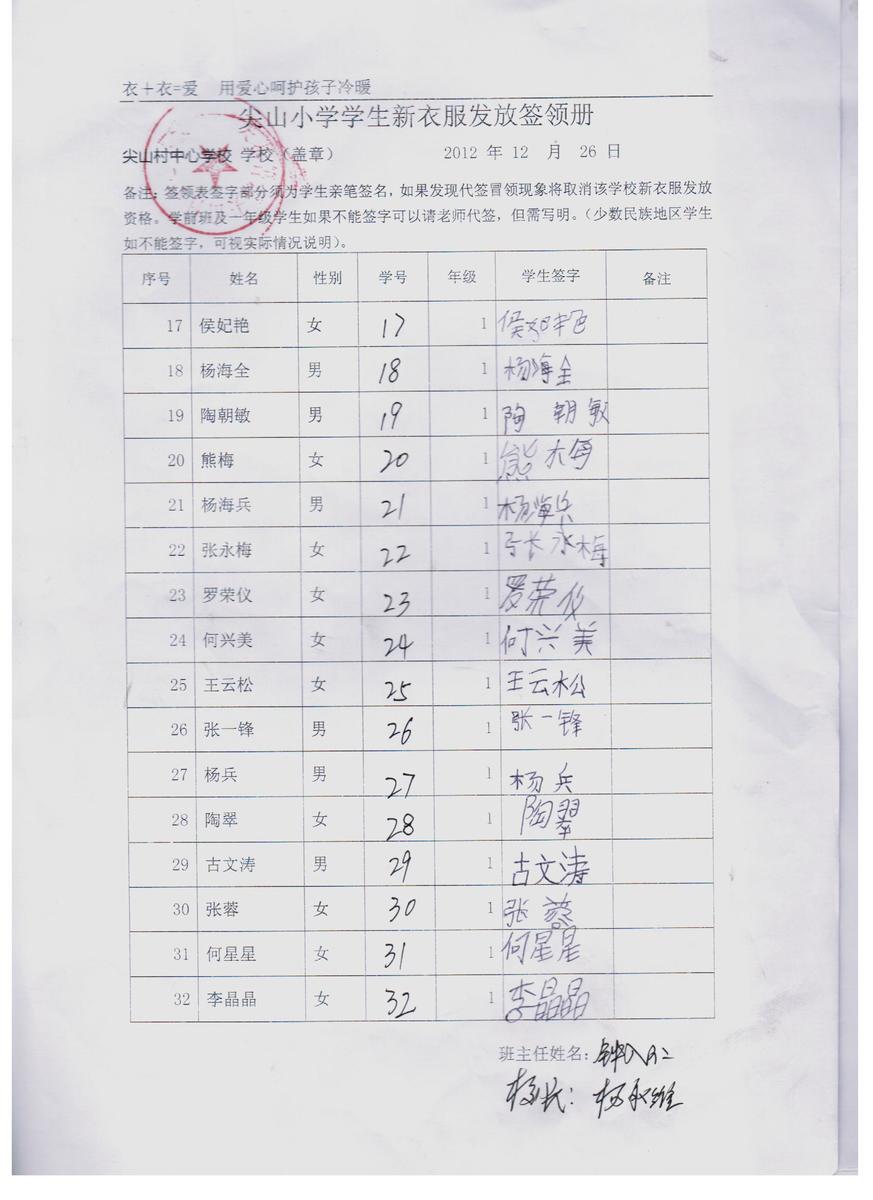 衣＋衣=爱 用爱心呵护孩子冷暖
尖山小学学生新衣服发放签领册
尖山村中心学校 学校（盖章） 2012 年 12 月 26 日
备注：签领表签字部分须为学生亲笔签名，如果发现代签冒领现象将取消该学校新衣服发放
资格。学前班及一年级学生如果不能签字可以请老师代签，但需写明。（少数民族地区学生
如不能签字，可视实际情况说明）。
序号 姓名 性别 学号 年级 学生签字 备注
17 侯妃艳 女 17 1 侯妃艳
18 杨海全 男 18 1 杨海全
19 陶朝敏 男 19 1 陶朝敏
20 熊梅 女 20 1 熊梅
21 杨海兵 男 21 1 杨海兵
22 张永梅 女 22 1 张永梅
23 罗荣仪 女 23 1 罗荣仪
24 何兴美 女 24 1 何兴美
25 王云松 女 25 1 王云松
26 张一锋 男 26 1 张一锋
27 杨兵 男 27 1 杨兵
28 陶翠 女 28 1 陶翠
29 古文涛 男 29 1 古文涛
30 张蓉 女 30 1 张蓉
31 何星星 女 31 1 何星星
32 李晶晶 女 32 1 李晶晶
班主任姓名：
校长：杨永维